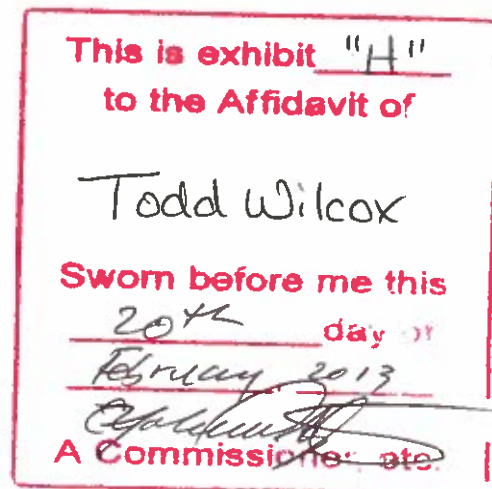 This is exhibit "H"
to the Affidavit of
Todd Wilcox
Sworn before me this
20th day of
February 2013
A Commissioner, etc.